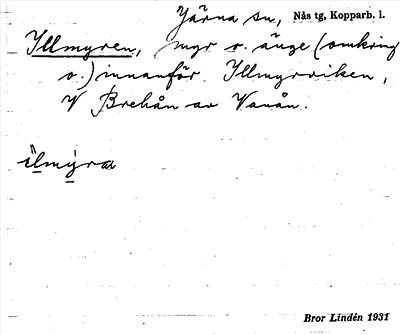 Järna sn, Nås tg, Kopparb. l.
Illmyren, myr o. änge (omkring
o.) innanför Illmyrviken,
V Brehån av Vanån.
ìlmýra
Bror Lindén 1931